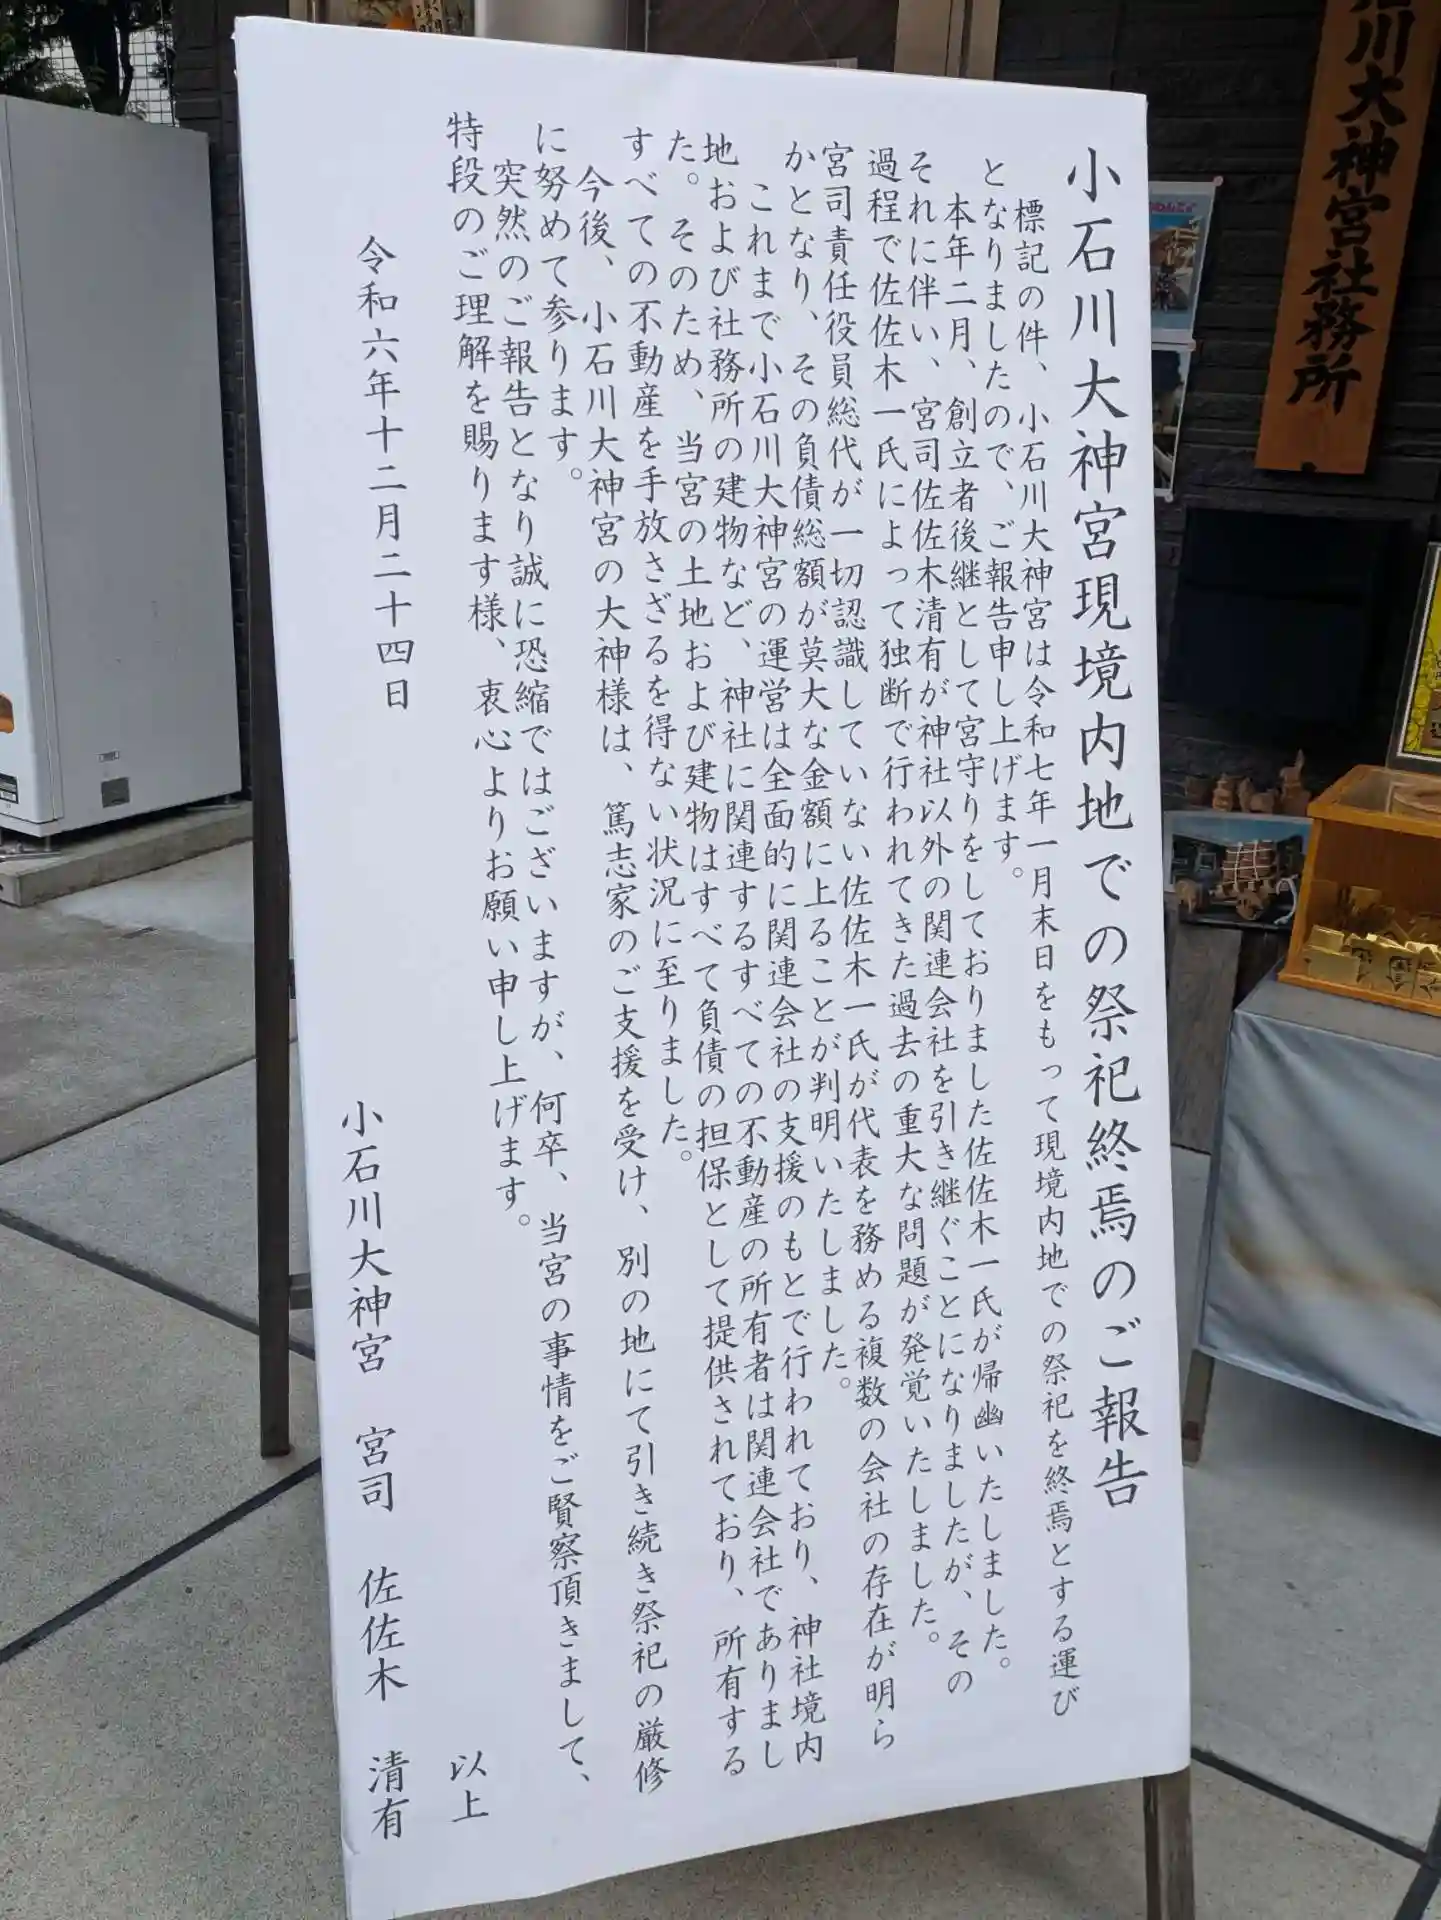 小石川大神宮現境内地での祭祀終焉のご報告
標記の件、小石川大神宮は令和七年一月末日をもって現境内地での祭祀を終焉とする運び
となりましたので、ご報告申し上げます。
本年二月、創立者後継として宮守りをしておりました佐佐木一氏が帰幽いたしました。
それに伴い、宮司佐佐木清有が神社以外の関連会社を引き継ぐことになりましたが、その
過程で佐佐木一氏によって独断で行われてきた過去の重大な問題が発覚いたしました。
宮司責任役員総代が一切認識していない佐佐木一氏が代表を務める複数の会社の存在が明ら
かとなり、その負債総額が莫大な金額に上ることが判明いたしました。
これまで小石川大神宮の運営は全面的に関連会社の支援のもとで行われており、神社境内
地および社務所の建物など、神社に関連するすべての不動産の所有者は関連会社でありまし
た。そのため、当宮の土地および建物はすべて負債の担保として提供されており、所有する
すべての不動産を手放さざるを得ない状況に至りました。
今後、小石川大神宮の大神様は、篤志家のご支援を受け、別の地にて引き続き祭祀の厳修
に努めて参ります。
突然のご報告となり誠に恐縮ではございますが、何卒、当宮の事情をご賢察頂きまして、
特段のご理解を賜ります様、衷心よりお願い申し上げます。
以上
令和六年十二月二十四日
小石川大神宮　宮司　佐佐木　清有
石川大神宮社務所